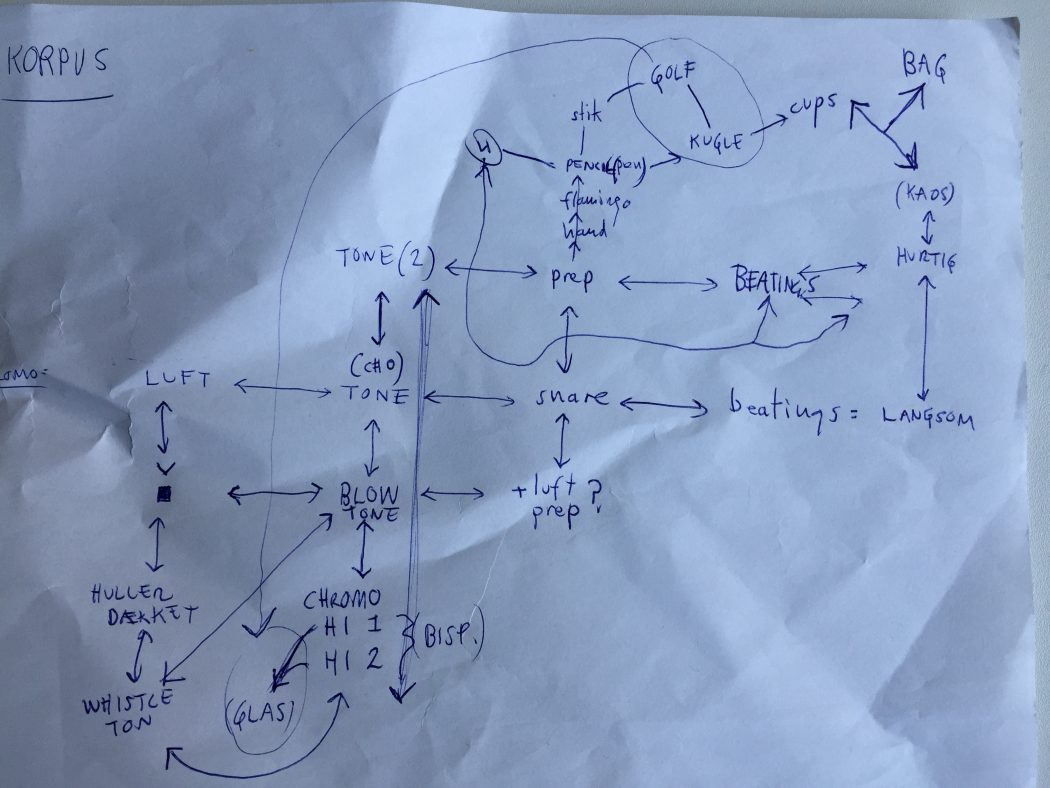 KORPUS
GOLF
BAG
stik
cups
KUGLE
4
flamingo
(KAOS)
hand
HURTIG
TONE (2)
prep
BEATINGS
(CHO)
LUFT
TONE
snare
beatings = LANGSOM
BLOW
TONE
+ luft
prep ?
HULLER
DÆKKET
CHROMO
HI 1
(BISP.)
HI 2
WHISTLE
TON
(GLAS)